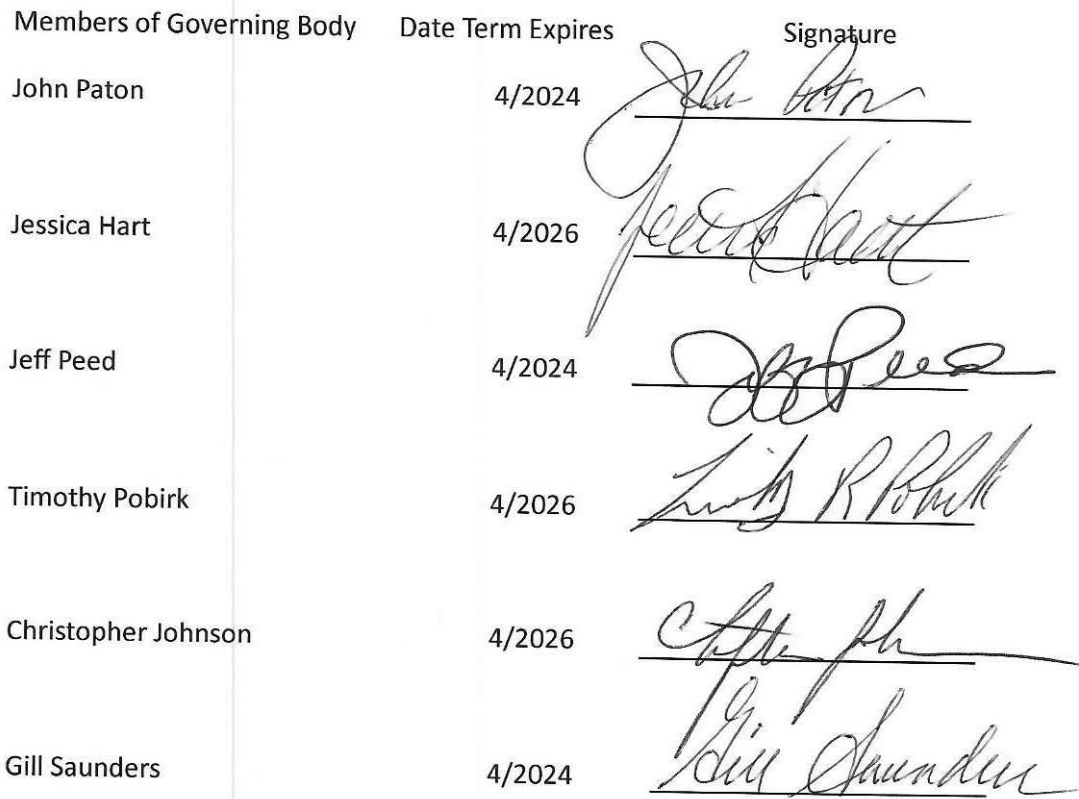 Members of Governing Body Date Term Expires Signature
John Paton 4/2024 John Paton
Jessica Hart 4/2026 Hart
Jeff Peed 4/2024 Jeff Peed
Timothy Pobirk 4/2026 R
Christopher Johnson 4/2026
Gill Saunders 4/2024 Gill Saunders